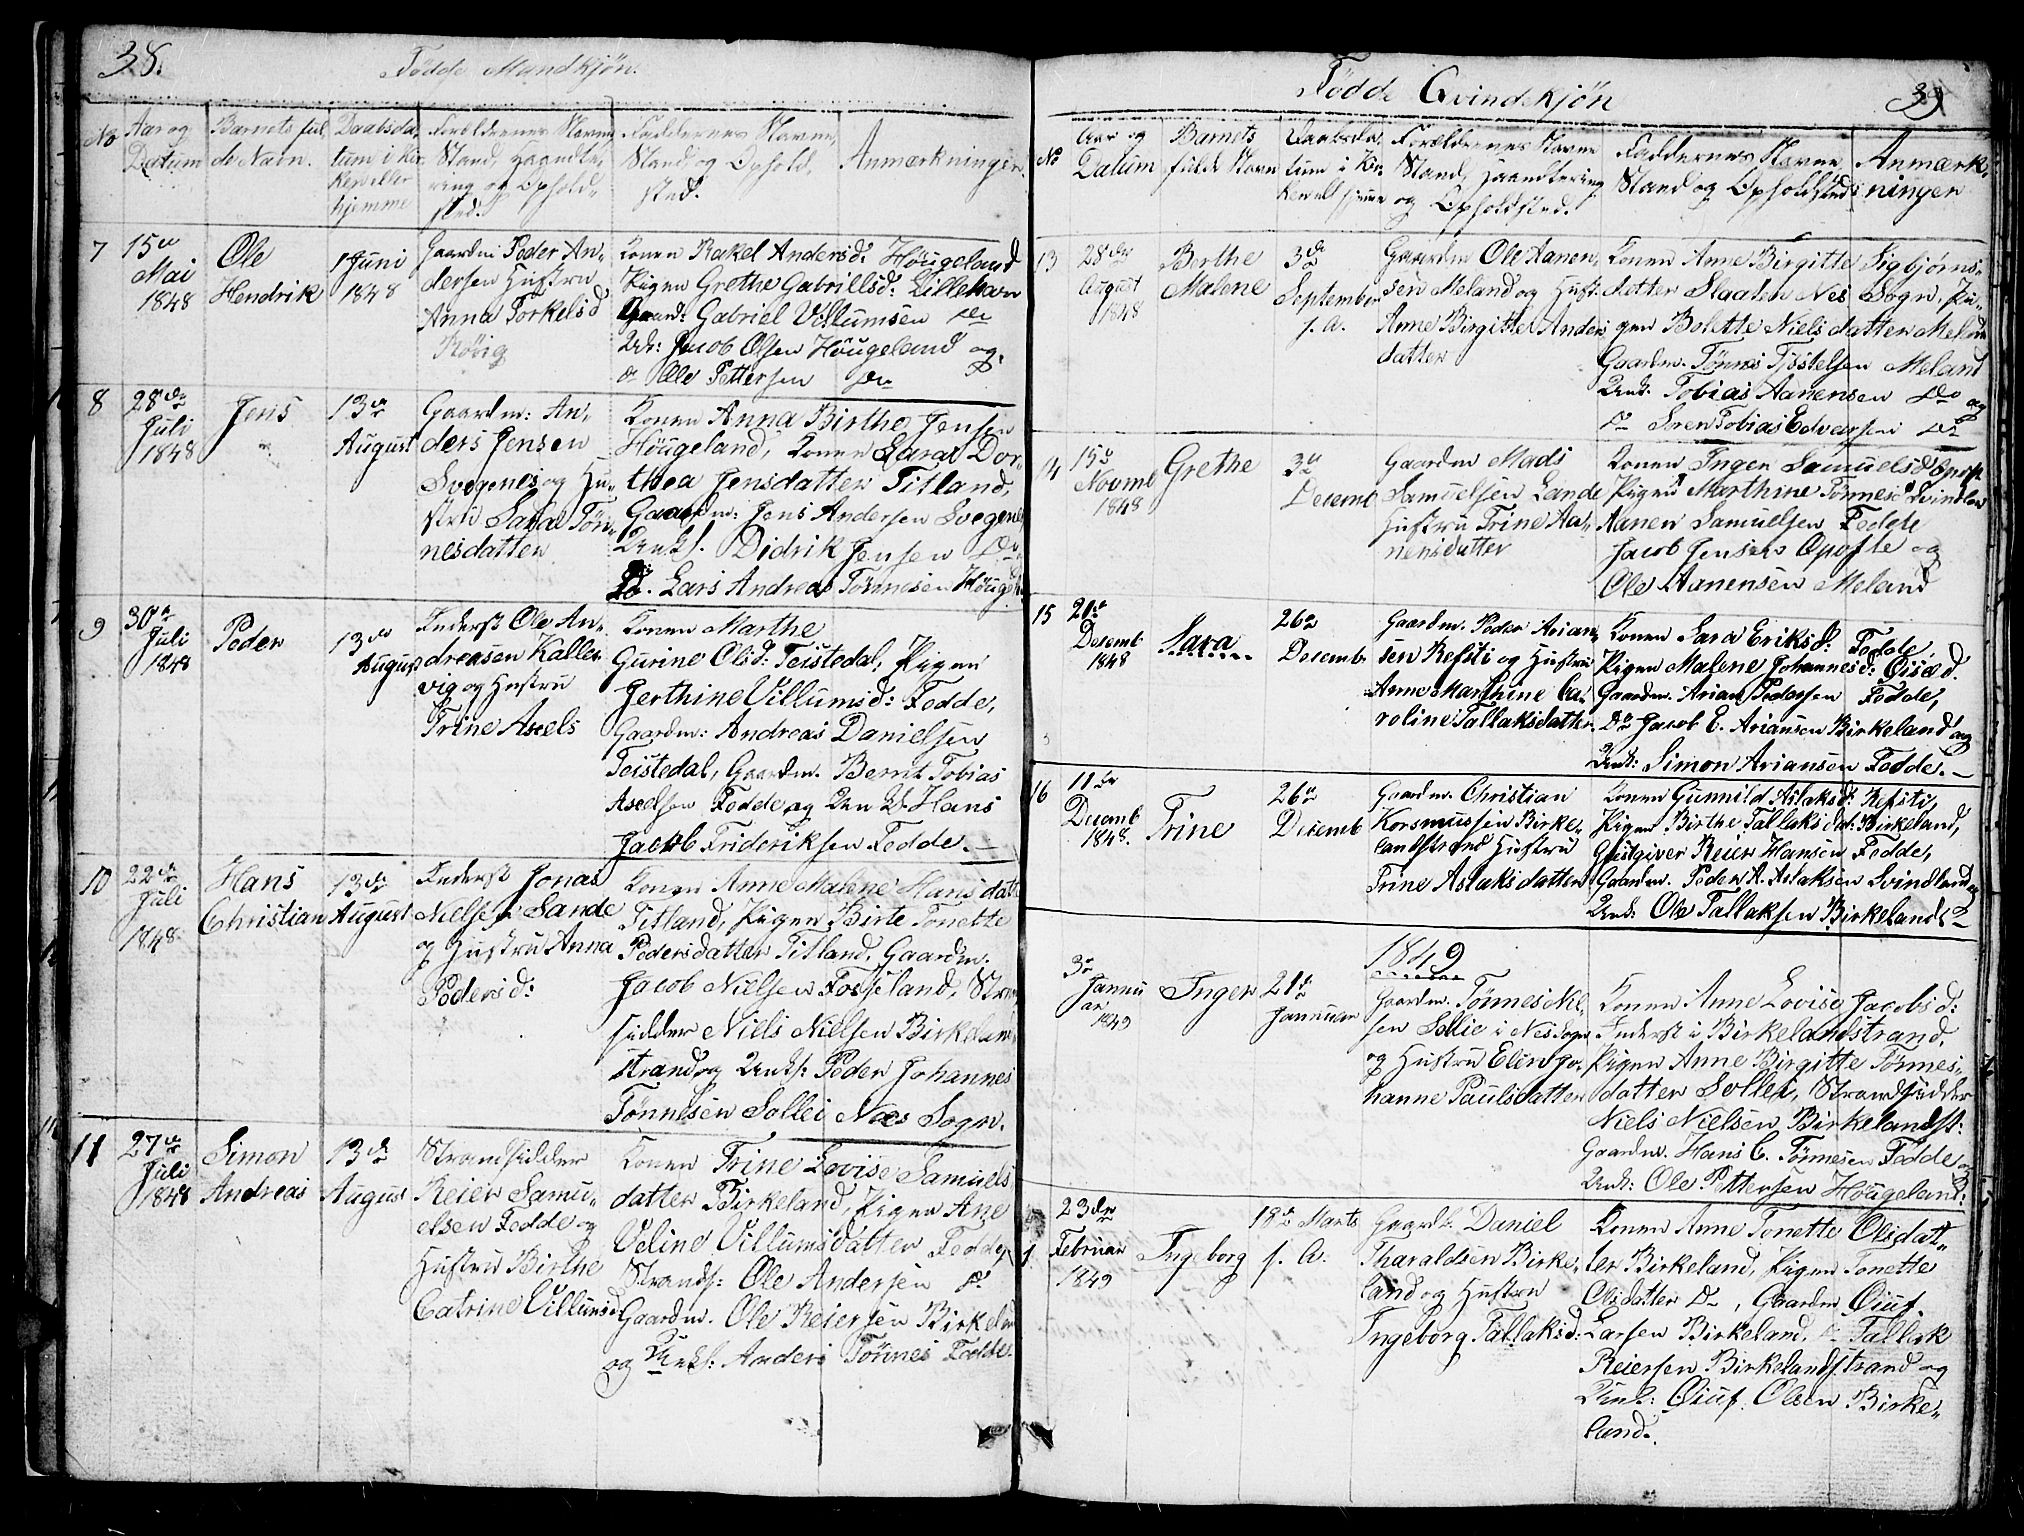 38.
Fødde Mandkjøn.
No
Aar og
Datum
Barnets ful
de Navn.
Daabsda,
tum i Kir
ken eller
hjemme
Forældrenes Navne
Stand, Haandte,
ring og Ophold,,
sted.
Faddernes Navne,
Stand og Ophold,
sted.
Anmærkninger.
7
15de
Mai
1848
Ole
Hendrik
1 Juni
1848
Gaardm Peder An,
dersen Hustru
Anna Torkelsd
Røvig
Konen Rakel Andersd: Höugeland
Pigen Grethe Gabrillsd: Lillehavn
Gaard: Gabriel Villumsen do
Unk: Jacob Olsen Höugeland og,
do Ole Pettersen do
8
28de
Juli
1848
Jens
13de
August
Gaardm: An,
ders Jensen
Svegenes og Hu,
stru Sara Tøn,
nesdatter
Konen Anna Birthe Jensen
Höugeland, Konen Sara Dor,
thea Jensdatter Titland,
Gaardm: Jens Andersen Svegenes
Unkf. Didrik Jensen do
Do. Lars Andreas Tönnesen Höugel
9
30te
Juli
1848
Peder
13de
August
Inderst Ole An,
dreasen Kaller
vig og Hustru
Trine Axels
Konen Marthe
Gurine Olsd: Teistedal, Pigen
Jerthine Villumsd: Fedde,
Gaardm: Andreas Danielsen
Teistedal, Gaardm. Bernt Tobias
Axelsen Fedde og Unkf Hans
Jacob Frideriksen Fedde.
10
22de
Juli
1848
Hans
Christian
13de
August
Inderst Jonas
Nielsen Sande
og Hustru Anna
Pedersd:
Konen Anne Malene Hansdatt
Titland, Pigen Birte Tonette
Pedersdatter Titland, Gaardm.
Jacob Nielsen Fosseland, Stran
sidder Niels Nielsen Birkeland
strand og Unkf: Peder Johannes
Tönnesen Sollei Næs Sogn.
11
27de
Juli
1848
Simon
Andreas
13de
August
Strandsidder
Reier Samu,
elsen Fedde og
Hustru Birthe
Catrine Villumsd:
Konen Trine Lovise Samuels
datter Birkeland, Pigen Ane
Veline Villumsdatter Fedde,
Strands: Ole Andersen do
Gaardm. Ole Reiersen Birkelan
og Unkf: Anders Tönnes Fedde.
Fødde Qvindekjøn
39
No
Aar og
Datum
Barnets
fulde Navn
Daabsda,
tum i Kir,
ken el hjemme
Forældrenes Navne
Stand, Haandtering
og Opholdsted.
Faddernes Navne
Stand og Opholdsted
Anmærk,
ninger
13
28de
August
1848
Birthe
Malene
3de
September
s. A.
Gaardm Ole Aanen,
sen Meland og Hust.
Anne Birgitte Anders
datter
Konen Anne Birgitte Sigbjørns,
dotter Slaaten Nes Sogn, Pi,
gen Bolette Nielsdatter Meland
Gaardm. Tønnes Tjöstelsen Meland
Unk: Tobias Aanensen do og
do Sören Tobias Edvarsen do
14
15de
Novmb
1848
Grethe
3de
Decemb
Gaardm Mads
Samuelsen Lande
Hustru Trine Aa,
nensdatter
Konen Inger Samuelsd Opoft
Pigen Marthine Tönnesd Svindlan
Aanen Samuelsen Fedde
Jacob Jensen Opofte og
Ole Aanensen Meland
15
20de
Desemb
1848
Sara
26de
Desemb
Gaardm. Peder Arian,
sen Refsti og Hustru
Anne Marthine Ca,
roline Tallaksdatter
Konen Sara Eriksd: Fedde,
Pigen Malene Johannesd: Öisæd.
Gaardm. Arian Pedersen Fedde,
Do Jacob E. Ariansen Birkeland og
Unk: Simon Ariansen Fedde.
16
11te
Decemb
1848.
Trine
26de
Decemb
Gaardm. Christian
Korsmussen Birke,
landstrand Hustru
Trine Aslaksdatter
Konen Gunnild Aslaksd: Refsti,
Pigen Birthe Tallaksdat: Birkeland,
Gjestgiver Reier Hansen Fedde,
Gaardm. Peder A. Aslaksen Svindland og
Unk: Ole Tallaksen Birkelands
1849
3de
Jannu
ar
1849
Inger
21de
Jannuar
Gaardm. Tönnes Nil,
sen Sollie i Nes Sogn
og Hustru Elen Jo,
hanne Paulsdatter
Konen Anne Lovise Jacobsd:
Inderst i Birkelandstrand,
Pigen Anne Birgitte Tønnes,
datter Sollei, Strandsidder
Niels Nielsen, Birkelandst:
Gaardm. Hans C. Tönnesen Fedde og
Unk: Ole Pettersen Höugeland:
23de
Februar
1849
Ingeborg
18de Marts
s. A.
Gaardb. Daniel
Tharaldsen Birke,
land og Hustru
Ingeborg Tallaksd:
Konen Anne Tonette Olsdat,
ter Birkeland, Pigen Tonette
Olsdatter Do, Gaardm Öiuf.
Larsen Birkeland, do Tallak
Reiersen Birkelandstrand og
Unk: Öiuf. Olsen Birke,
land.